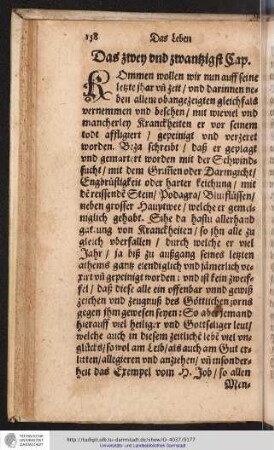 138 Das Leben
Das zwey vnd zwantzigst Cap.
KOmmen wollen wir nun auff seine
letzte jhar vñ zeit / vnd darinnen ne-
ben allem obangezeigten gleichfals
vernemmen vnd besehen / mit wieviel vnd
mancherley Kranckheiten er vor seinem
todt affligiert / gepeinigt vnd verzeret
worden. Beza schreibt / daß er geplagt
vnd gemartert worden mit der Schwind-
sucht / mit dem Grüffen oder Darmgicht /
Engbrüstigkeit oder harter keichung / mit
dẽ reissendẽ Stein / Podagra / Blutflüssen /
neben grosser Hauptwee / welche er gemei-
niglich gehabt. Sihe da hastu allerhand
gattung von Kranckheiten / so jhn alle zu
gleich vberfallen / durch welche er viel
Jahr / ja biß zu außgang seines letzten
athems gantz elendiglich vnd jämerlich ve-
xirt vñ gepeinigt worden: vnd ist kein zweif-
fel / daß diese alle ein offenbar vnnd gewiß
zeichen vnd zeugnuß des Göttlichen zorns
gegen jhm gewesen seyen: So aber jemand
hierauff viel heiliger vnd Gottseliger leut /
welche auch in diesem zeitlichẽ lebẽ viel vn-
glücks / so wol am Leib / als auch am Gut er-
litten / allegieren vnd anziehen / vñ insonder-
heit das Exempel vom H. Job / so allen
Men-
http://tudigit.ulb.tu-darmstadt.de/show/G-4037/0177
Universitäts- und Landesbibliothek Darmstadt